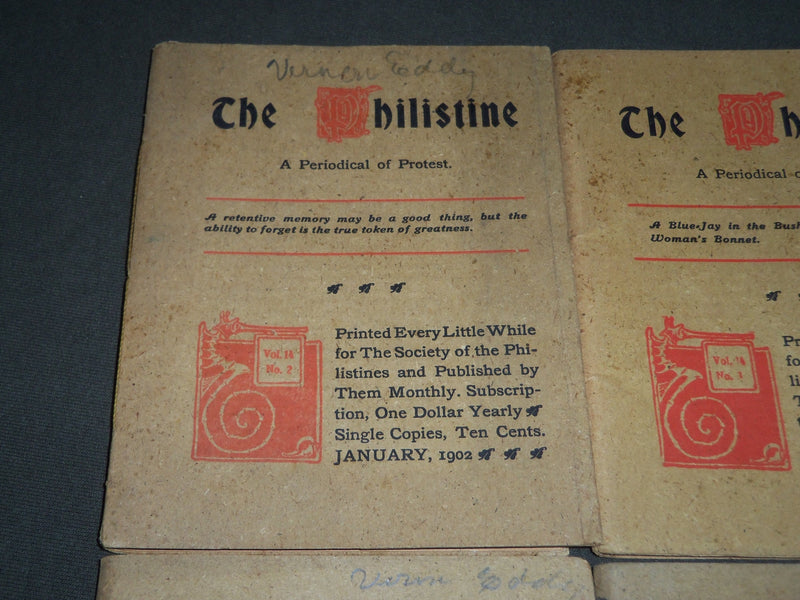 Vernon Eddy
The Philistine
A Periodical of Protest.
A retentive memory may be a good thing, but the
ability to forget is the true token of greatness.
Vol. 14
No. 2
Printed Every Little While
for The Society of the Phi-
listines and Published by
Them Monthly. Subscrip-
tion, One Dollar Yearly
Single Copies, Ten Cents.
JANUARY, 1902
The Ph
A Periodical o
A Blue-Jay in the Bush
Woman's Bonnet.
Vol. 14
No. 3
Pr
fo
li
T
Eddy